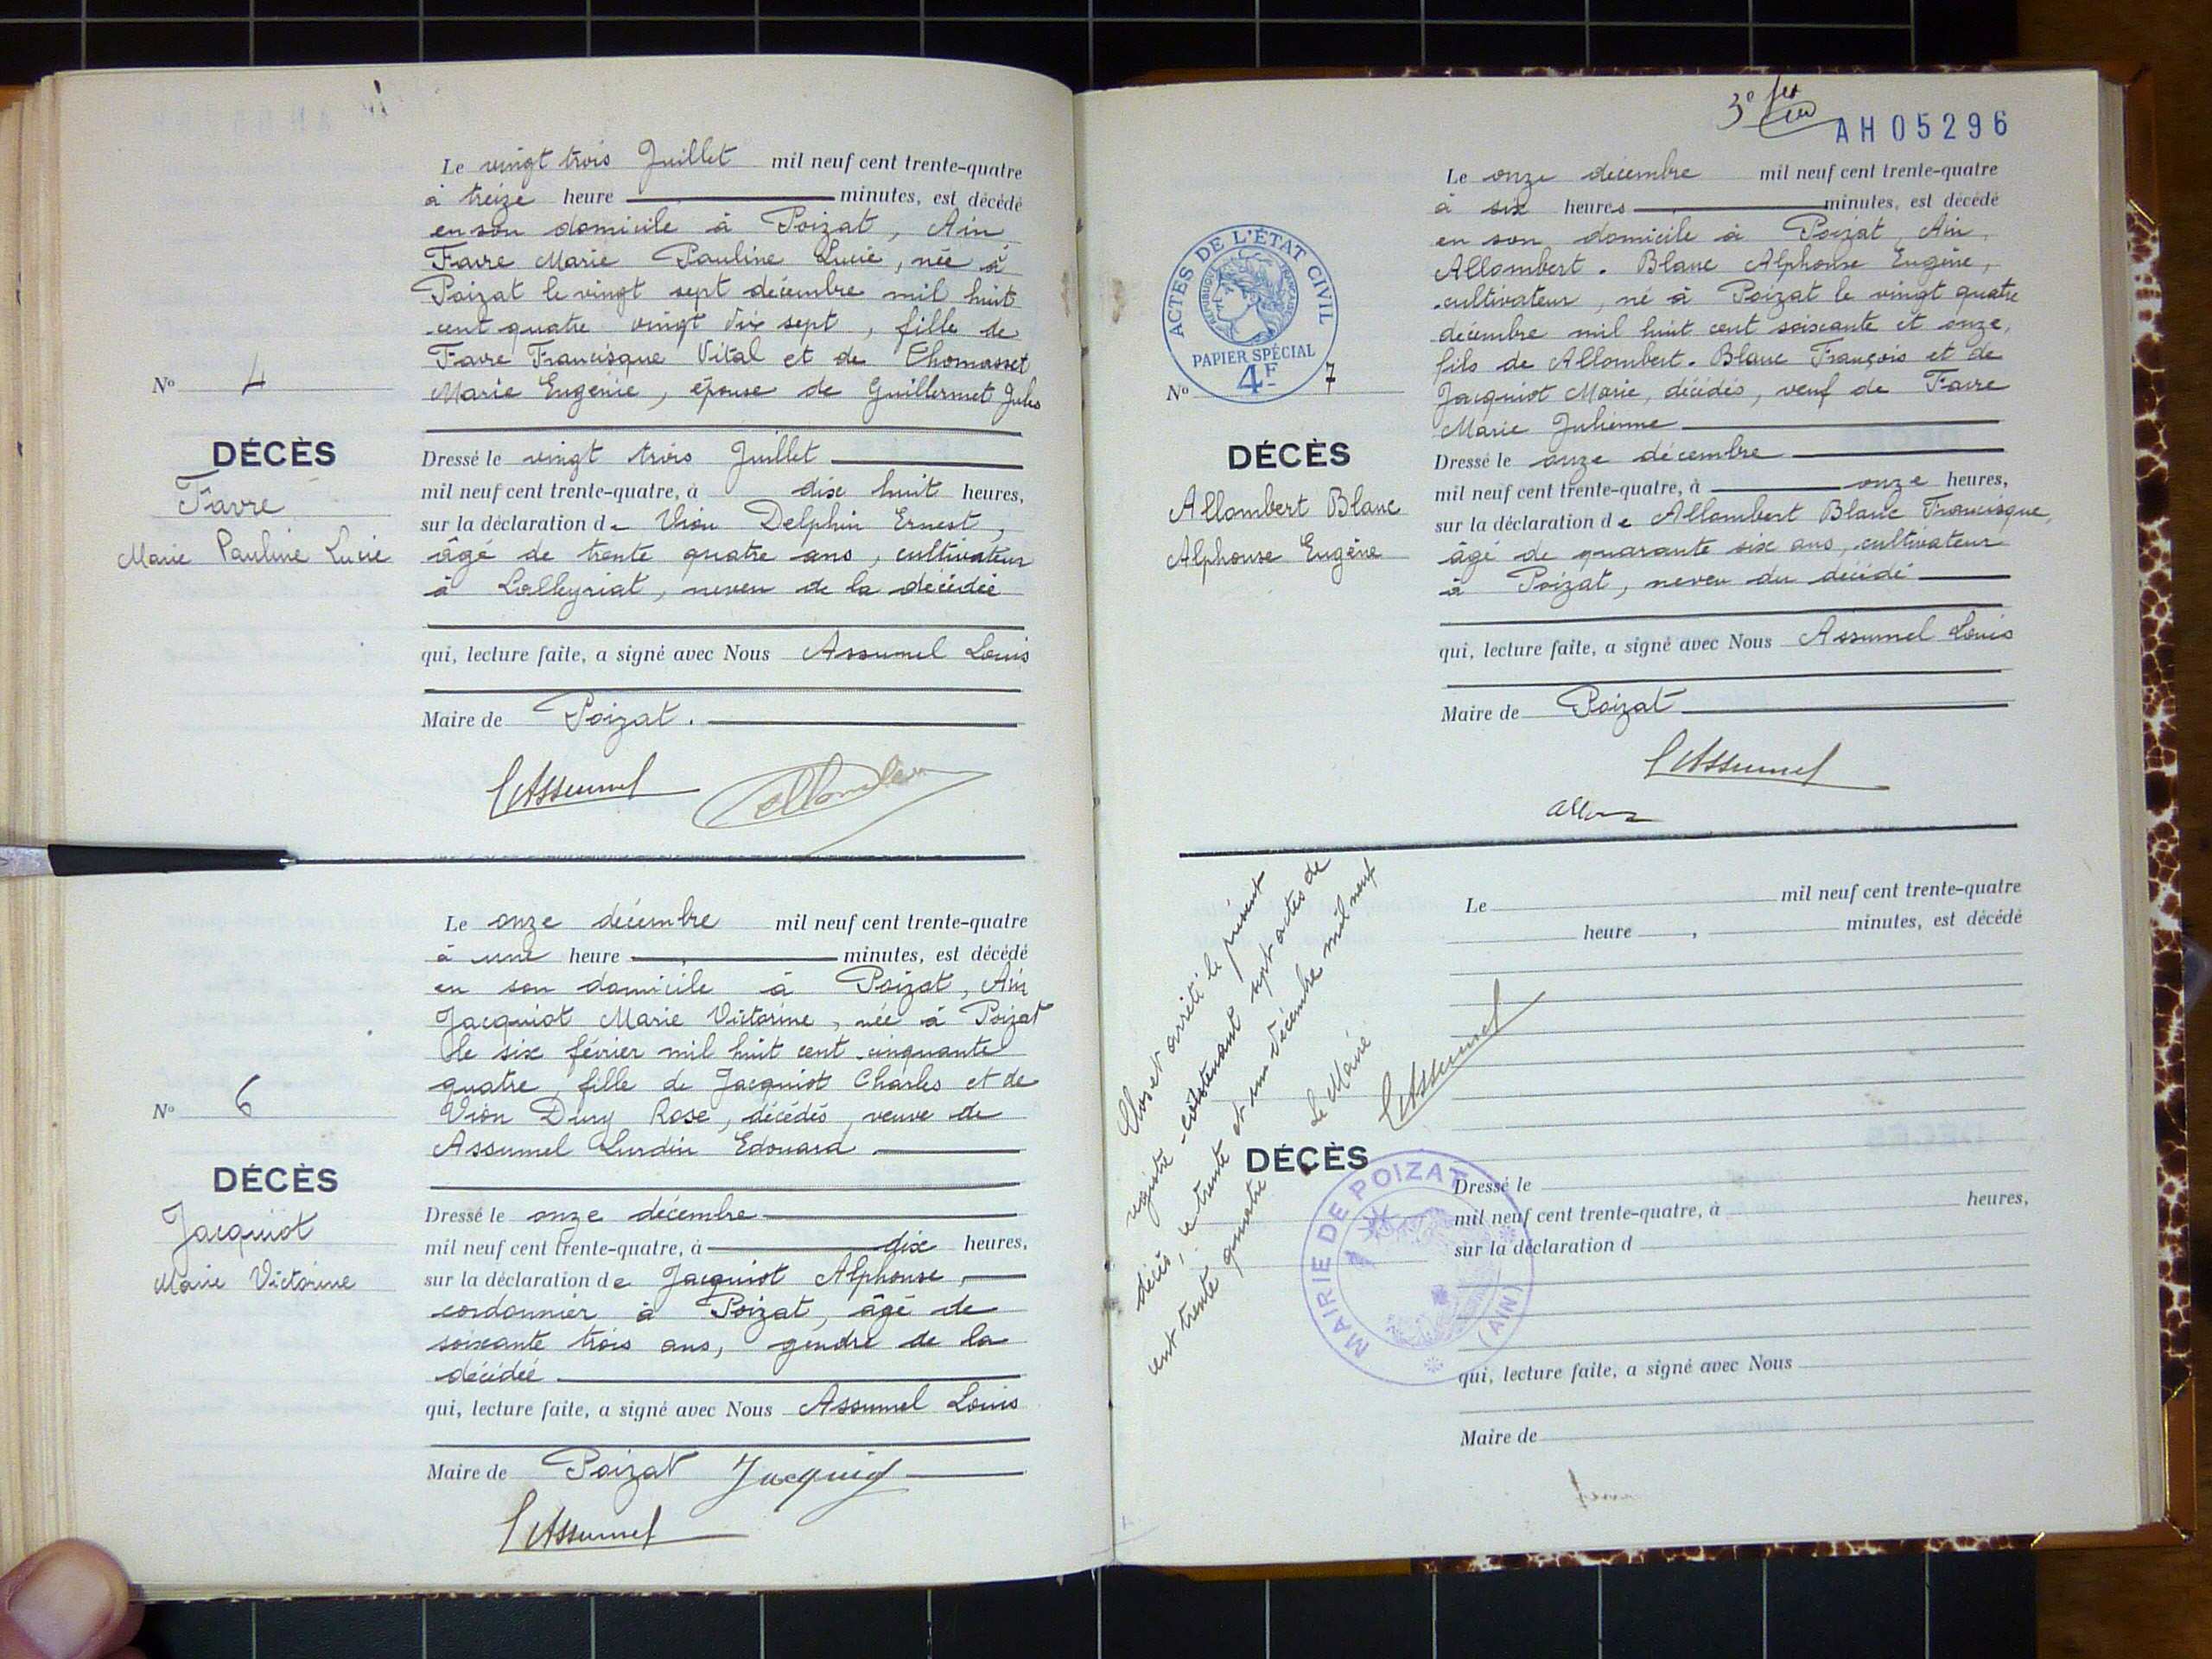 Le vingt trois Juillet mil neuf cent trente-quatre
à treize heure minutes, est décédé
en son domicile à Poizat, Ain
Favre Marie Pauline Lucie, née à
Poizat le vingt sept décembre mil huit
cent quatre vingt dix sept, fille de
Favre Francisque Vital et de Thomasset
Marie Eugénie, épouse de Guillermet Jules
Nº 4
DÉCÈS
Favre
Marie Pauline Lucie
Dressé le vingt trois Juillet
mil neuf cent trente-quatre, à dix huit heures,
sur la déclaration de Vion Delphin Ernest,
âgé de trente quatre ans, cultivateur
à Lalleyriat, neveu de la décédée
qui, lecture faite, a signé avec Nous Assumel Louis
Maire de Poizat.
LAssumel
Le onze décembre mil neuf cent trente-quatre
à une heure minutes, est décédé
en son domicile à Poizat, Ain
Jacquiot Marie Victorine, née à Poizat
le six février mil huit cent cinquante
quatre, fille de Jacquiot Charles et de
Vion Dury Rose, décédés, veuve de
Assumel Lurdin Edouard
Nº 6
DÉCÈS
Jacquiot
Marie Victorine
Dressé le onze décembre
mil neuf cent trente-quatre, à dix heures,
sur la déclaration de Jacquiot Alphonse,
cordonnier à Poizat, âgé de
soixante trois ans, gendre de la
décédée
qui, lecture faite, a signé avec Nous Assumel Louis
Maire de Poizat Jacquiot
LAssumel
3e
AH05296
Le onze décembre mil neuf cent trente-quatre
à six heures minutes, est décédé
en son domicile à Poizat, Ain,
Allombert-Blanc Alphonse Eugène,
cultivateur, né à Poizat le vingt quatre
décembre mil huit cent soixante et onze,
fils de Allombert-Blanc François et de
Jacquiot Marie, décédés, veuf de Favre
Marie Julienne
ACTES DE L'ÉTAT CIVIL
RÉPUBLIQUE FRANÇAISE
PAPIER SPÉCIAL
4F
Nº 7
DÉCÈS
Allombert Blanc
Alphonse Eugène
Dressé le onze décembre
mil neuf cent trente-quatre, à onze heures,
sur la déclaration de Allombert Blanc Francisque,
âgé de quarante six ans, cultivateur
à Poizat, neveu du décédé
qui, lecture faite, a signé avec Nous Assumel Louis
Maire de Poizat
LAssumel
Clos et arrêté le présent
registre contenant sept actes de
décès, le trente et un décembre mil neuf
cent trente quatre
Le Maire
LAssumel
Le mil neuf cent trente-quatre
heure , minutes, est décédé
DÉCÈS
MAIRIE DE POIZAT
(AIN)
Dressé le
mil neuf cent trente-quatre, à heures,
sur la déclaration d
qui, lecture faite, a signé avec Nous
Maire de